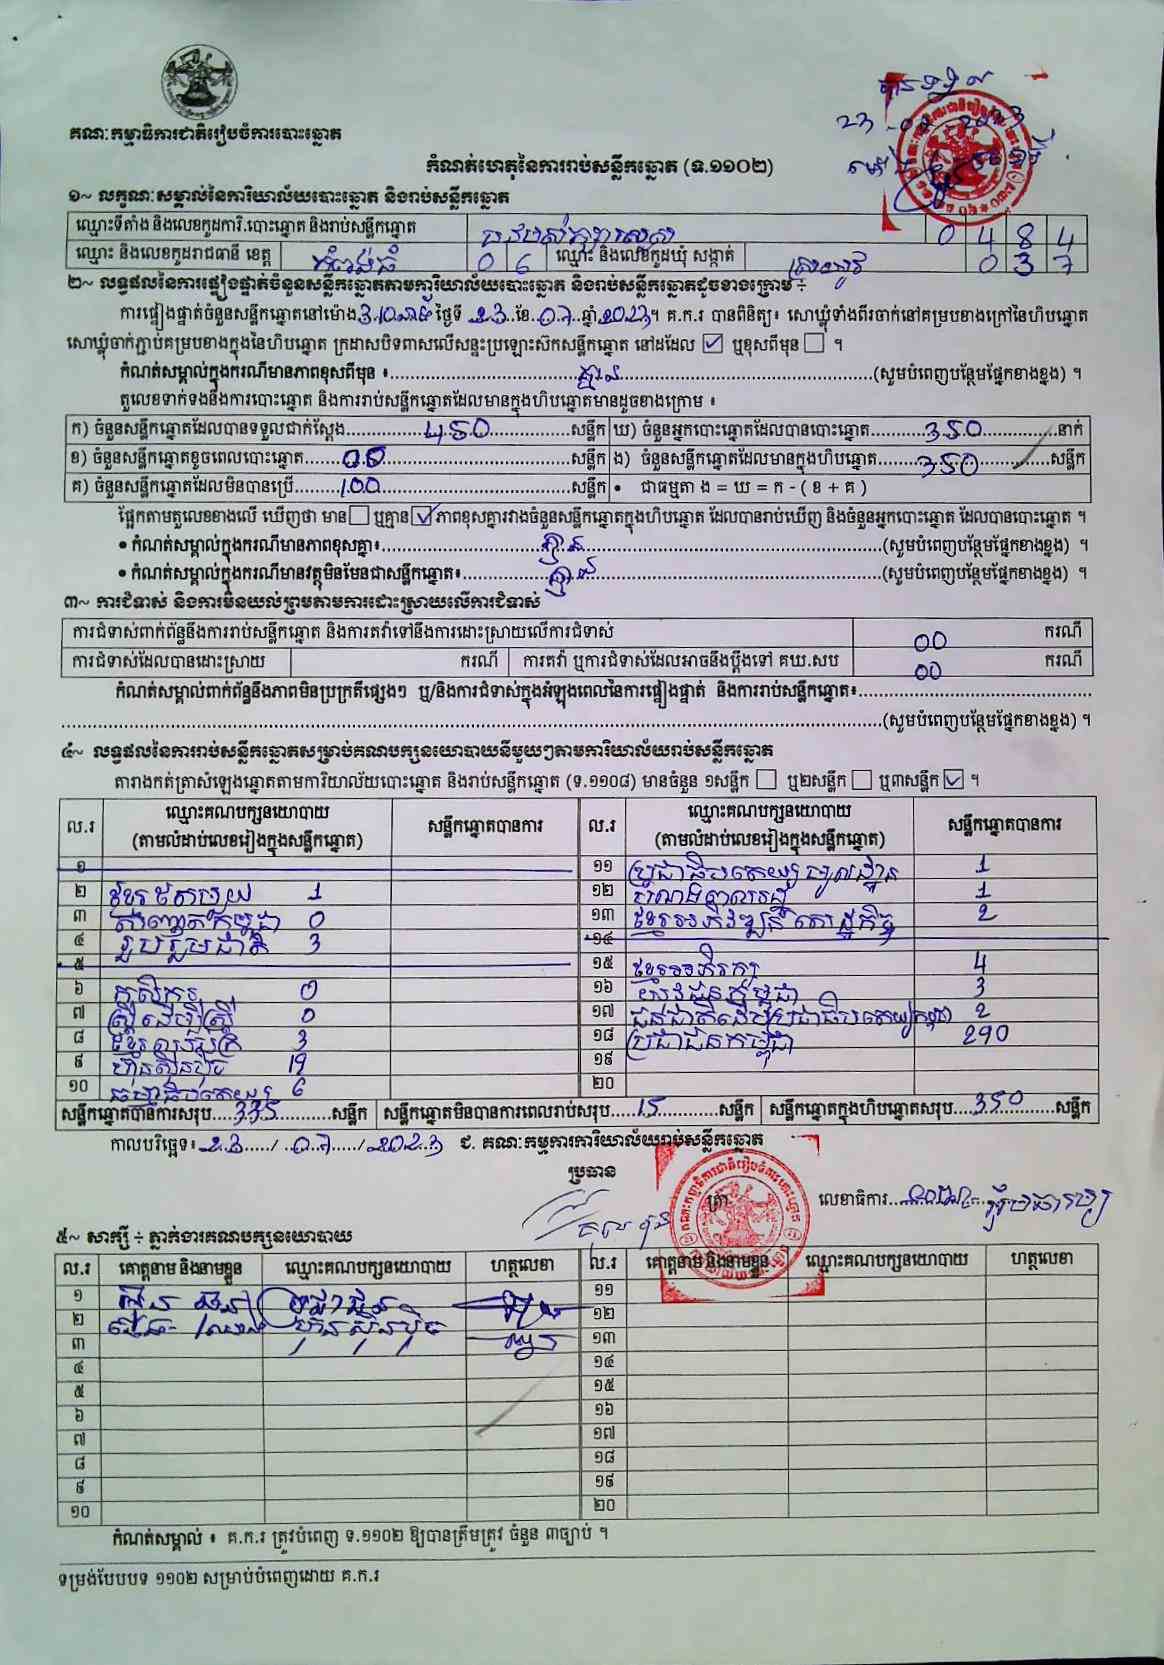 គណៈកម្មាធិការជាតិរៀបចំការបោះឆ្នោត
បានទទួល
23-07-2023
កំណត់ហេតុនៃការរាប់សន្លឹកឆ្នោត (ទ.១១០២)
១~ លក្ខណៈសម្គាល់នៃការិយាល័យបោះឆ្នោត និងរាប់សន្លឹកឆ្នោត
ឈ្មោះទីតាំង និងលេខកូដការិ.បោះឆ្នោត និងរាប់សន្លឹកឆ្នោត 0 4 8 4
ឈ្មោះ និងលេខកូដរាជធានី ខេត្ត កំពង់ធំ 0 6 ឈ្មោះ និងលេខកូដឃុំ សង្កាត់ 0 3 7
២~ លទ្ធផលនៃការផ្ទៀងផ្ទាត់ចំនួនសន្លឹកឆ្នោតតាមការិយាល័យបោះឆ្នោត និងរាប់សន្លឹកឆ្នោតដូចខាងក្រោម ÷
ការផ្ទៀងផ្ទាត់ចំនួនសន្លឹកឆ្នោតនៅម៉ោង 3:10នាទី ថ្ងៃទី 23 ខែ 07 ឆ្នាំ 2023 ។ គ.ក.រ បានពិនិត្យ៖ សោឃ្លុំទាំងពីរចាក់នៅគម្របខាងក្រៅនៃហិបឆ្នោត
សោឃ្លុំចាក់ភ្ជាប់គម្របខាងក្នុងនៃហិបឆ្នោត ក្រដាសបិទពាសលើសន្ទះប្រឡោះស៊កសន្លឹកឆ្នោត នៅដដែល ☑ ឬខុសពីមុន ☐ ។
កំណត់សម្គាល់ក្នុងករណីមានភាពខុសពីមុន ៖ គ្មាន (សូមបំពេញបន្ថែមផ្នែកខាងខ្នង) ។
តួលេខទាក់ទងនឹងការបោះឆ្នោត និងការរាប់សន្លឹកឆ្នោតដែលមានក្នុងហិបឆ្នោតមានដូចខាងក្រោម ៖
ក) ចំនួនសន្លឹកឆ្នោតដែលបានទទួលជាក់ស្តែង 450 សន្លឹក ឃ) ចំនួនអ្នកបោះឆ្នោតដែលបានបោះឆ្នោត 350 នាក់
ខ) ចំនួនសន្លឹកឆ្នោតខូចពេលបោះឆ្នោត 00 សន្លឹក ង) ចំនួនសន្លឹកឆ្នោតដែលមានក្នុងហិបឆ្នោត 350 សន្លឹក
គ) ចំនួនសន្លឹកឆ្នោតដែលមិនបានប្រើ 100 សន្លឹក • ជាធម្មតា ង = ឃ = ក - ( ខ + គ )
ផ្អែកតាមតួលេខខាងលើ ឃើញថា មាន ☐ ឬគ្មាន ☑ ភាពខុសគ្នារវាងចំនួនសន្លឹកឆ្នោតក្នុងហិបឆ្នោត ដែលបានរាប់ឃើញ និងចំនួនអ្នកបោះឆ្នោត ដែលបានបោះឆ្នោត ។
• កំណត់សម្គាល់ក្នុងករណីមានភាពខុសគ្នា៖ គ្មាន (សូមបំពេញបន្ថែមផ្នែកខាងខ្នង) ។
• កំណត់សម្គាល់ក្នុងករណីមានវត្ថុមិនមែនជាសន្លឹកឆ្នោត៖ គ្មាន (សូមបំពេញបន្ថែមផ្នែកខាងខ្នង) ។
៣~ ការជំទាស់ និងការមិនយល់ព្រមតាមការដោះស្រាយលើការជំទាស់
ការជំទាស់ពាក់ព័ន្ធនឹងការរាប់សន្លឹកឆ្នោត និងការតវ៉ាទៅនឹងការដោះស្រាយលើការជំទាស់ 00 ករណី
ការជំទាស់ដែលបានដោះស្រាយ ករណី ការតវ៉ា ឬការជំទាស់ដែលអាចនឹងប្តឹងទៅ គឃ.សប 00 ករណី
កំណត់សម្គាល់ពាក់ព័ន្ធនឹងភាពមិនប្រក្រតីផ្សេងៗ ឬ/និងការជំទាស់ក្នុងអំឡុងពេលនៃការផ្ទៀងផ្ទាត់ និងការរាប់សន្លឹកឆ្នោត៖
(សូមបំពេញបន្ថែមផ្នែកខាងខ្នង) ។
៤~ លទ្ធផលនៃការរាប់សន្លឹកឆ្នោតសម្រាប់គណបក្សនយោបាយនីមួយៗតាមការិយាល័យរាប់សន្លឹកឆ្នោត
តារាងកត់ត្រាសំឡេងឆ្នោតតាមការិយាល័យបោះឆ្នោត និងរាប់សន្លឹកឆ្នោត (ទ.១១០៨) មានចំនួន ១សន្លឹក ☐ ឬ២សន្លឹក ☐ ឬ៣សន្លឹក ☑ ។
ល.រ ឈ្មោះគណបក្សនយោបាយ (តាមលំដាប់លេខរៀងក្នុងសន្លឹកឆ្នោត) សន្លឹកឆ្នោតបានការ ល.រ ឈ្មោះគណបក្សនយោបាយ (តាមលំដាប់លេខរៀងក្នុងសន្លឹកឆ្នោត) សន្លឹកឆ្នោតបានការ
១ ១១ ប្រជាធិបតេយ្យមូលដ្ឋាន 1
២ ខ្មែរឯកភាព 1 ១២ 1
៣ សញ្ជាតិកម្ពុជា 0 ១៣ ខ្មែរអភិវឌ្ឍន៍សេដ្ឋកិច្ច 2
៤ រួបរួមជាតិ 3 ១៤
៥ ១៥ ខ្មែរអភិរក្ស 4
៦ កសិករ 0 ១៦ យុវជនកម្ពុជា 3
៧ ស្ត្រីដើម្បីស្ត្រី 0 ១៧ ជនជាតិដើមប្រជាធិបតេយ្យកម្ពុជា 2
៨ 3 ១៨ ប្រជាជនកម្ពុជា 290
៩ ហ៊្វុនស៊ិនប៉ិច 19 ១៩
១០ ធម្មាធិបតេយ្យ 6 ២០
សន្លឹកឆ្នោតបានការសរុប 335 សន្លឹក សន្លឹកឆ្នោតមិនបានការពេលរាប់សរុប 15 សន្លឹក សន្លឹកឆ្នោតក្នុងហិបឆ្នោតសរុប 350 សន្លឹក
កាលបរិច្ឆេទ៖ 23 / 07 / 2023 ជ. គណៈកម្មការការិយាល័យរាប់សន្លឹកឆ្នោត
ប្រធាន ត្រា លេខាធិការ
៥~ សាក្សី ÷ ភ្នាក់ងារគណបក្សនយោបាយ
ល.រ គោត្តនាម និងនាមខ្លួន ឈ្មោះគណបក្សនយោបាយ ហត្ថលេខា ល.រ គោត្តនាម និងនាមខ្លួន ឈ្មោះគណបក្សនយោបាយ ហត្ថលេខា
១ ប្រជាជន ១១
២ ហ៊្វុនស៊ិនប៉ិច ១២
៣ ១៣
៤ ១៤
៥ ១៥
៦ ១៦
៧ ១៧
៨ ១៨
៩ ១៩
១០ ២០
កំណត់សម្គាល់ ៖ គ.ក.រ ត្រូវបំពេញ ទ.១១០២ ឱ្យបានត្រឹមត្រូវ ចំនួន ៣ច្បាប់ ។
ទម្រង់បែបបទ ១១០២ សម្រាប់បំពេញដោយ គ.ក.រ